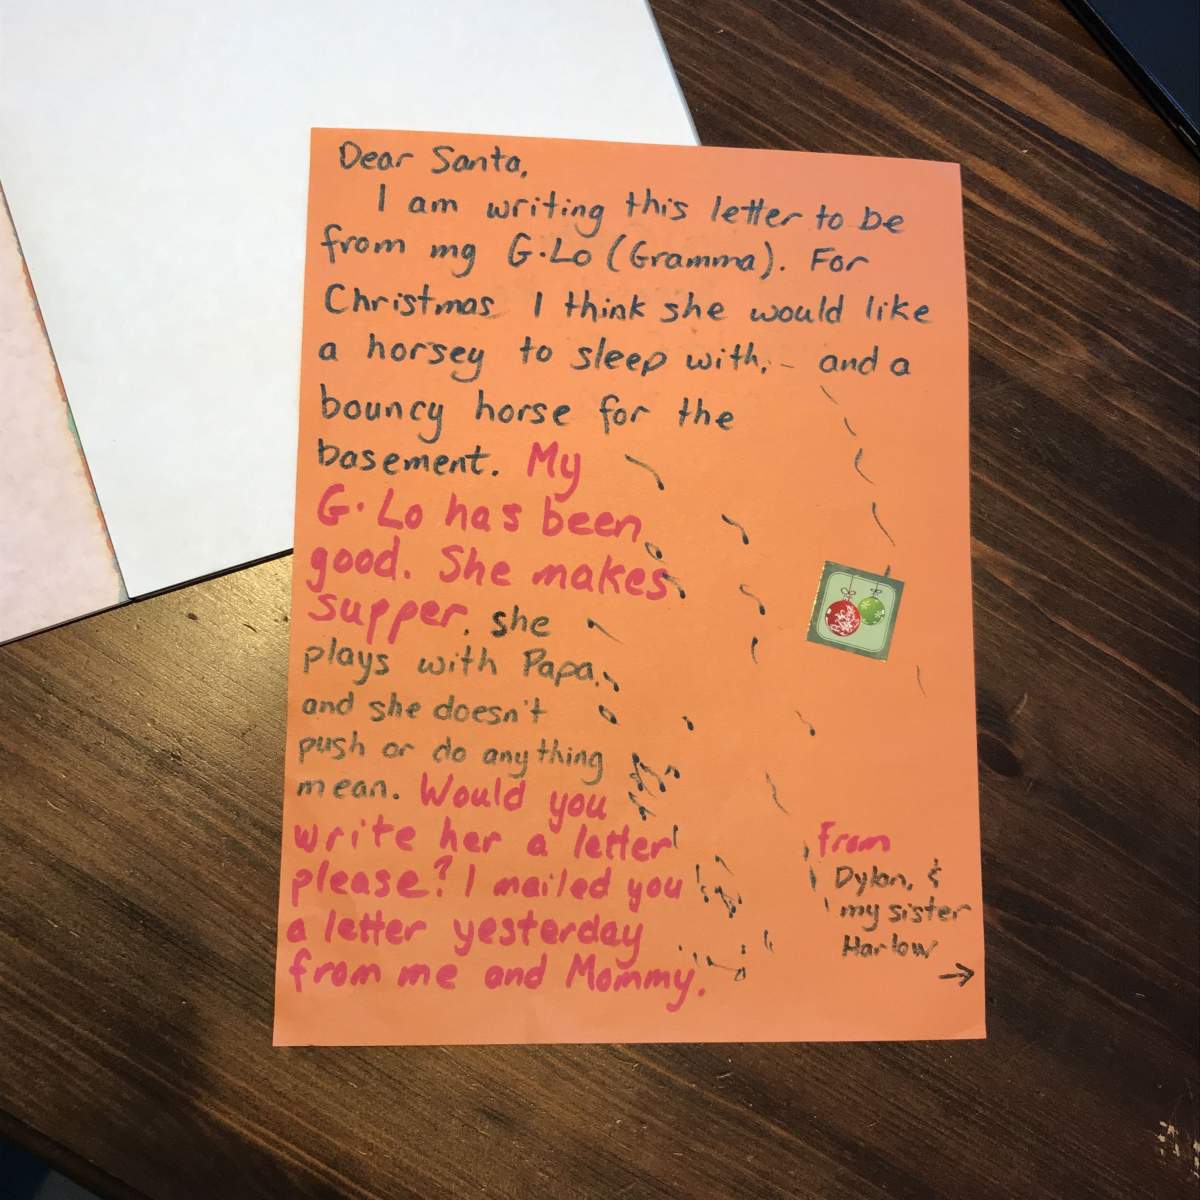 Dear Santa,
I am writing this letter to be
from my G.Lo (Gramma). For
Christmas I think she would like
a horsey to sleep with, - and a
bouncy horse for the
basement. My
G.Lo has been
good. She makes
supper, she
plays with Papa,
and she doesn't
push or do anything
mean. Would you
write her a letter
please? I mailed you
a letter yesterday
from me and Mommy.
from
Dylan, &
my sister
Harlow
→